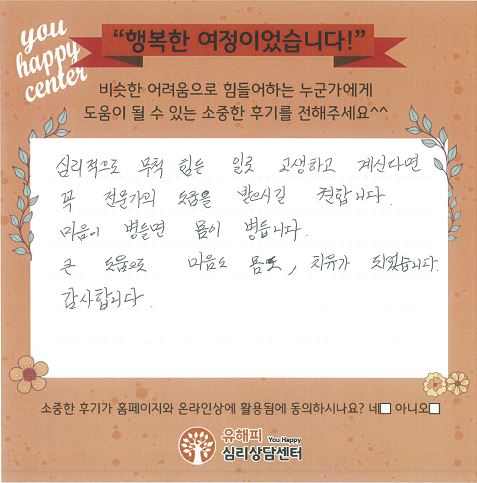 you
happy
center
“행복한 여정이었습니다!”
비슷한 어려움으로 힘들어하는 누군가에게
도움이 될 수 있는 소중한 후기를 전해주세요^^
심리적으로 무척 힘든 일로 고생하고 계신다면
꼭 전문가의 도움을 받으시길 권합니다.
마음이 병들면 몸이 병듭니다.
큰 도움으로 마음도 몸도, 치유가 되었습니다.
감사합니다.
소중한 후기가 홈페이지와 온라인상에 활용됨에 동의하시나요? 네□ 아니오□
유해피 You Happy
심리상담센터